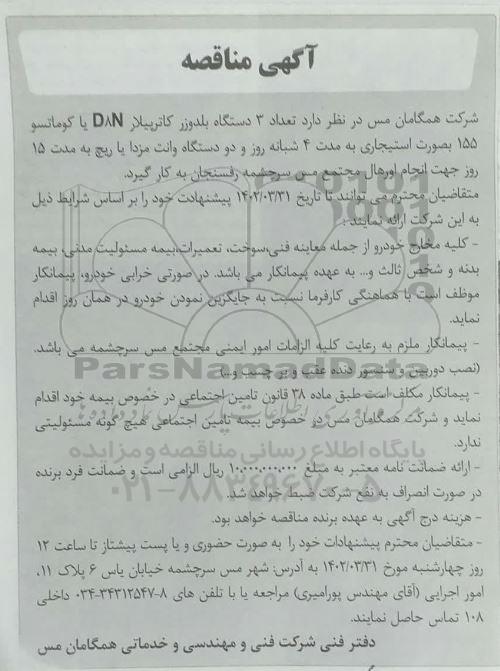 آگهی مناقصه
شرکت همگامان مس در نظر دارد تعداد ۳ دستگاه بلدوزر کاترپیلار D۸N یا کوماتسو
۱۵۵ بصورت استیجاری به مدت ۴ شبانه روز و دو دستگاه وانت مزدا یا ریچ به مدت ۱۵
روز جهت انجام اورهال مجتمع مس سرچشمه رفسنجان به کار گیرد.
متقاضیان محترم می توانند تا تاریخ ۱۴۰۲/۰۳/۳۱ پیشنهادت خود را بر اساس شرایط ذیل
به این شرکت ارائه نمایند :
- کلیه مخارج خودرو از جمله معاینه فنی،سوخت، تعمیرات،بیمه مسئولیت مدنی، بیمه
بدنه و شخص ثالث و... به عهده پیمانکار می باشد. در صورتی خرابی خودرو، پیمانکار
موظف است با هماهنگی کارفرما نسبت به جایگزین نمودن خودرو در همان روز اقدام
نماید.
- پیمانکار ملزم به رعایت کلیه الزامات امور ایمنی مجتمع مس سرچشمه می باشد.
(نصب دوربین و سنسور دنده عقب و بر چسب و...)
- پیمانکار مکلف است طبق ماده ۳۸ قانون تامین اجتماعی در خصوص بیمه خود اقدام
نماید و شرکت همگامان مس در خصوص بیمه تامین اجتماعی هیچ گونه مسئولیتی
ندارد.
- ارائه ضمانت نامه معتبر به مبلغ ۱۰.۰۰۰.۰۰۰.۰۰۰ ریال الزامی است و ضمانت فرد برنده
در صورت انصراف به نفع شرکت ضبط خواهد شد.
- هزینه درج آگهی به عهده برنده مناقصه خواهد بود.
- متقاضیان محترم پیشنهادات خود را به صورت حضوری و یا پست پیشتاز تا ساعت ۱۲
روز چهارشنبه مورخ ۱۴۰۲/۰۳/۳۱ به آدرس: شهر مس سرچشمه خیابان یاس ۶ پلاک ۱۱،
امور اجرایی (آقای مهندس پورامیری) مراجعه یا با تلفن های ۸-۳۴۳۱۲۵۴۷-۰۳۴ داخلی
۱۰۸ تماس حاصل نمایند.
دفتر فنی شرکت فنی و مهندسی و خدماتی همگامان مس
ParsNamadData
پایگاه اطلاع رسانی مناقصه و مزایده
۰۲۱-۸۸۳۴۹۶۷۰-۵